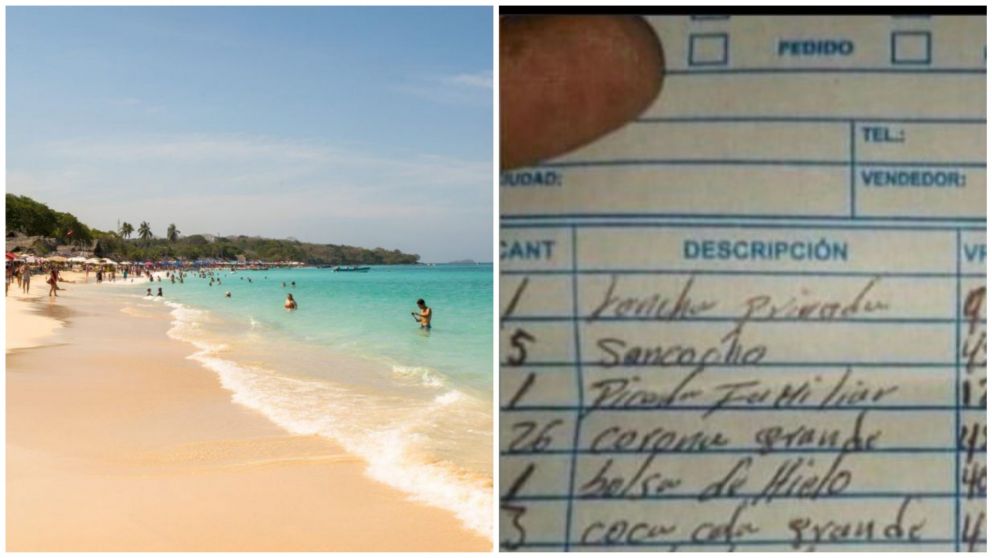 PEDIDO
TEL.:
UDAD:
VENDEDOR:
CANT DESCRIPCIÓN VR
1 Lancha privada 9
5 Sancocho 45
1 Picada Familiar 17
26 corona grande 42
1 bolsa de Hielo 40
3 coca cola grande 4